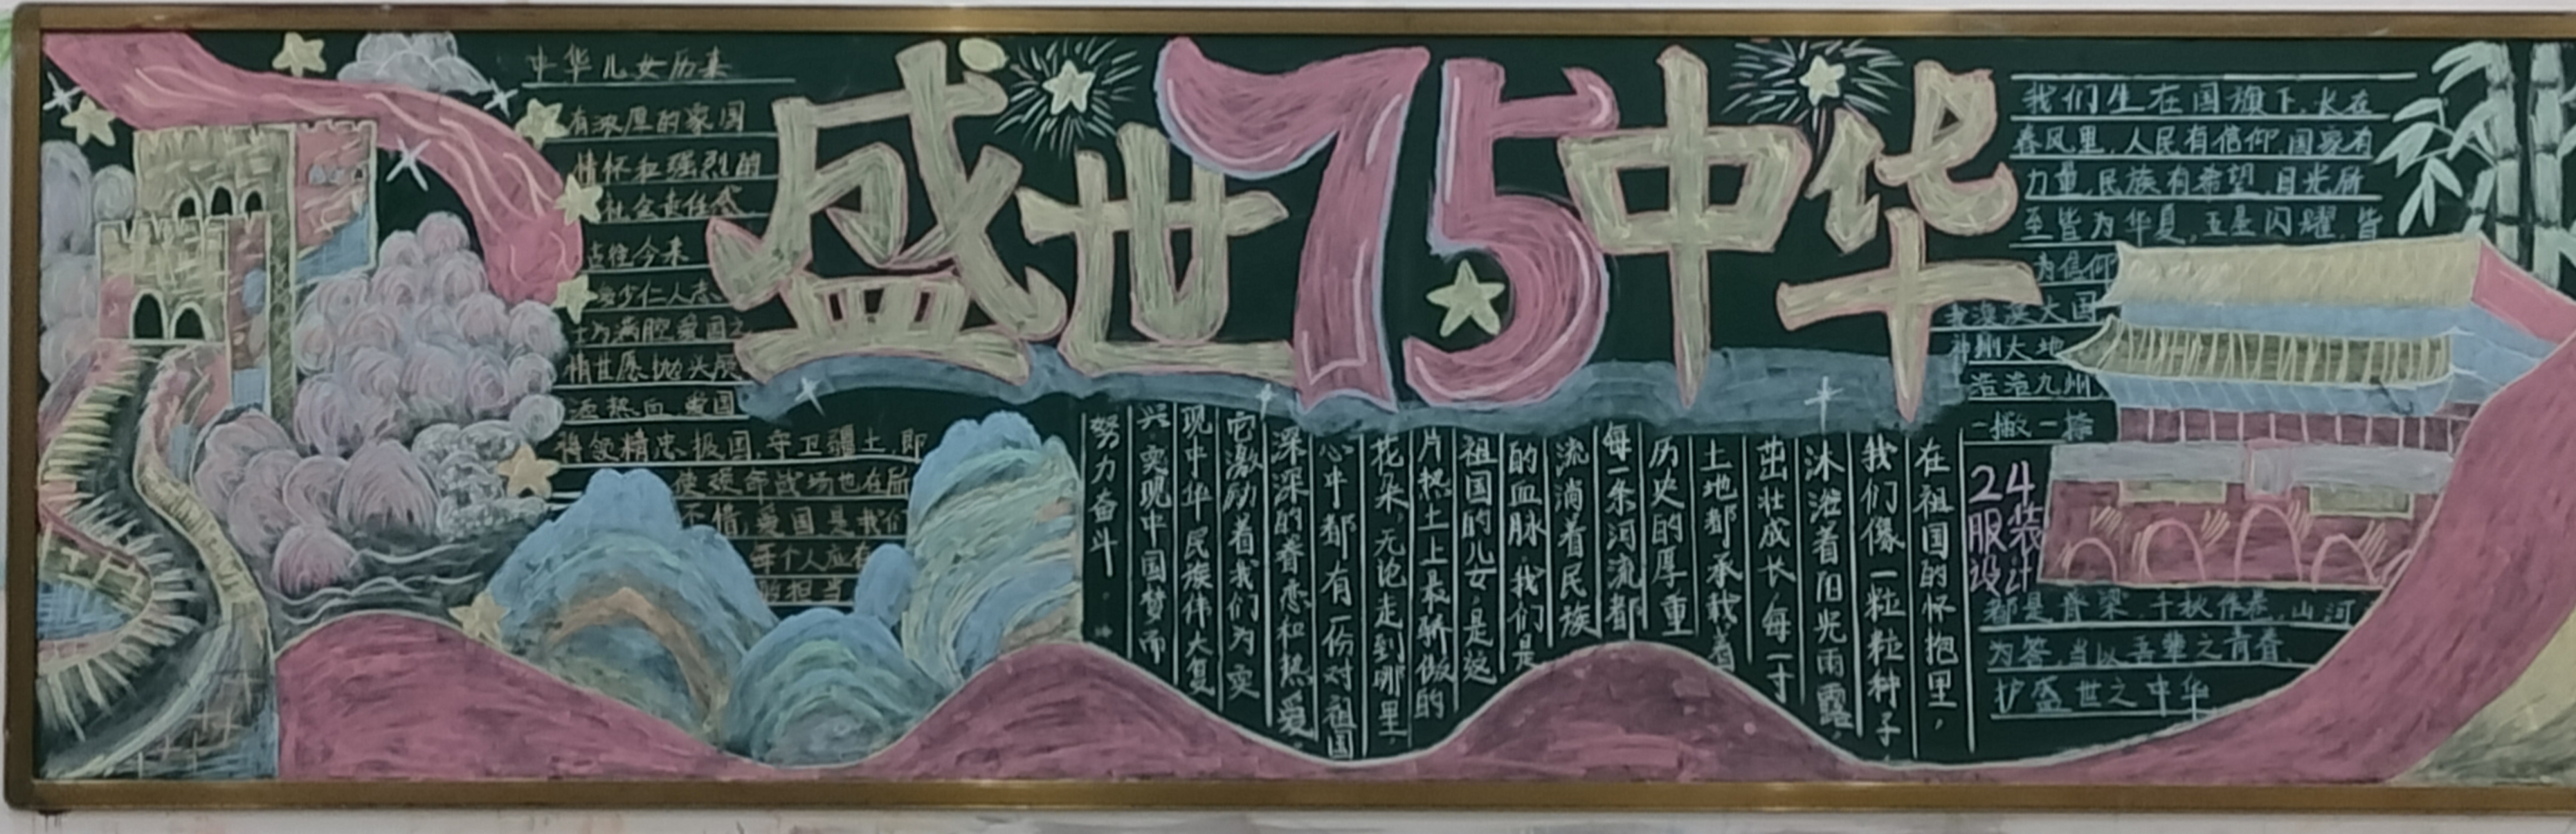 盛世75中华
中华儿女历来
有浓厚的家国
情怀和强烈的
社会责任感
古往今来
少仁人志
士为满腔爱国之
情甘愿抛头颅
洒热血 爱国
将领精忠报国,守卫疆土,即
使殒命战场也在所
不惜,爱国是我们
每个人应有
的担当
我们生在国旗下,长在
春风里,人民有信仰,国家有
力量,民族有希望,目光所
至皆为华夏,五星闪耀,皆
为信仰
我泱泱大国
神州大地
浩浩九州
一撇一捺
都是脊梁,千秋作卷,山河
为答,当以吾辈之青春,
护盛世之中华
24
服装
设计
在祖国的怀抱里,
我们像一粒粒种子
沐浴着阳光雨露,
茁壮成长,每一寸
土地都承载着
历史的厚重
每一条河流都
流淌着民族
的血脉,我们是
祖国的儿女,是这
片热土上最骄傲的
花朵,无论走到哪里,
心中都有一份对祖国
深深的眷恋和热爱。
它激励着我们为实
现中华民族伟大复
兴实现中国梦而
努力奋斗。